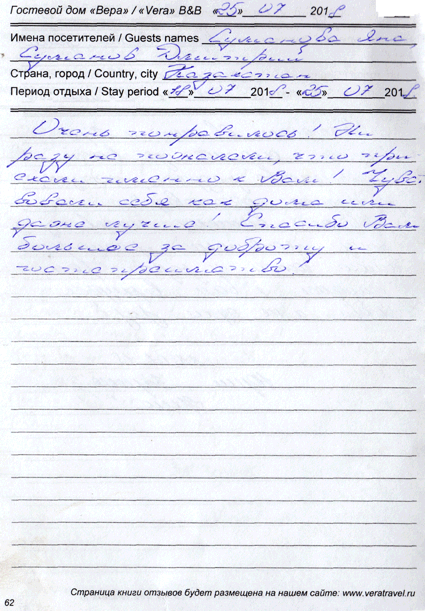 Гостевой дом «Вера» / «Vera» B&B «25» 07 2018
Имена посетителей / Guests names Сулманова Яна,
Сулманов Дмитрий
Страна, город / Country, city Казахстан
Период отдыха / Stay period « » 07 2018 - «25» 07 2018
Очень понравилось! Ни
разу не пожалели, что при
ехали именно к Вам! Чувс
вовали себя как дома или
даже лучше! Спасибо Вам
большое за доброту и
гостеприимство!
Страница книги отзывов будет размещена на нашем сайте: www.veratravel.ru
62